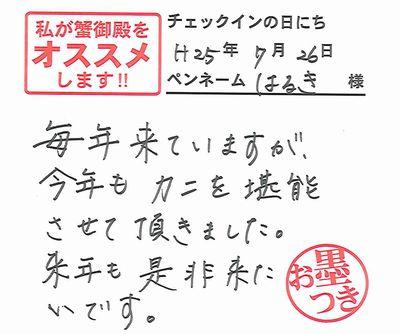 私が蟹御殿を
オススメ
します!!
チェックインの日にち
H25年 7月 26日
ペンネーム はるき 様
毎年来ていますが、
今年も カニを堪能
させて頂きました。
来年も是非来た
いです。
お墨
つき